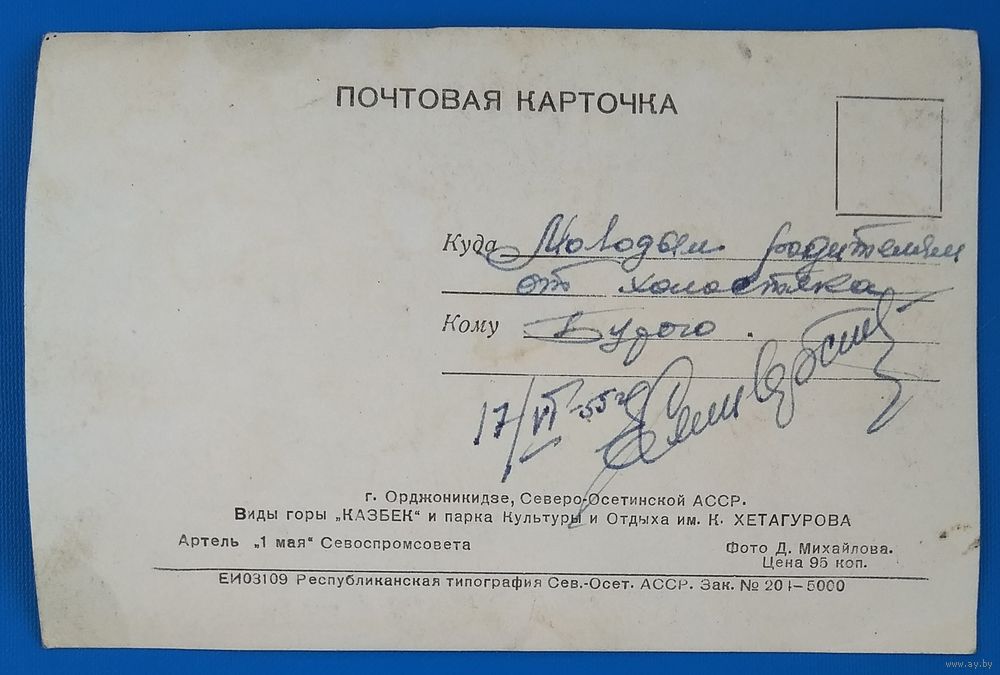 ПОЧТОВАЯ КАРТОЧКА
Куда Молодым родителям
от холостяка
Кому
17/VI-55 г
г. Орджоникидзе, Северо-Осетинской АССР.
Виды горы „КАЗБЕК“ и парка Культуры и Отдыха им. К. ХЕТАГУРОВА
Артель „1 мая“ Севоспромсовета
Фото Д. Михайлова.
Цена 95 коп.
ЕИ03109 Республиканская типография Сев.-Осет. АССР. Зак. № 201—5000
www.ay.by